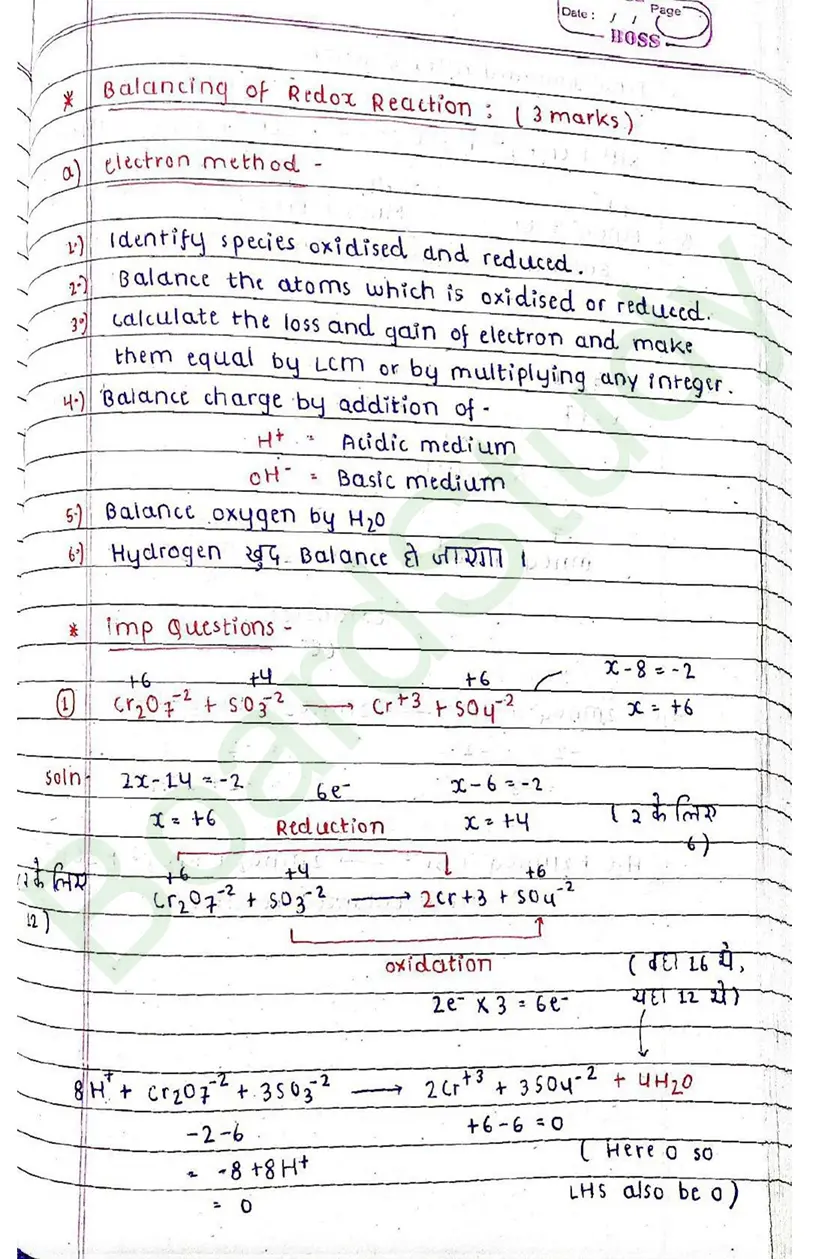 Date : / / Page
BOSS
* Balancing of Redox Reaction : (3 marks)
a) electron method -
1.) Identify species oxidised and reduced.
2.) Balance the atoms which is oxidised or reduced.
3.) calculate the loss and gain of electron and make
them equal by LCM or by multiplying any integer.
4.) Balance charge by addition of -
H⁺ = Acidic medium
OH⁻ = Basic medium
5.) Balance oxygen by H₂O
6.) Hydrogen खुद Balance हो जाएगा ।
* imp Questions -
+6 +4 +6 x-8=-2
① Cr₂O₇⁻² + SO₃⁻² ⟶ Cr⁺³ + SO₄⁻² x = +6
Soln- 2x-14=-2 6e⁻ x-6=-2
x = +6 Reduction x = +4 ( 2 के लिए
6)
+6 +4 +6
के लिए Cr₂O₇⁻² + SO₃⁻² ⟶ 2Cr+3 + SO₄⁻²
12)
oxidation ( वहा 16 थे,
2e⁻ x 3 = 6e⁻ यहा 12 थे)
8H⁺ + Cr₂O₇⁻² + 3SO₃⁻² ⟶ 2Cr⁺³ + 3SO₄⁻² + 4H₂O
-2-6 +6-6=0
= -8+8H⁺ ( Here 0 so
= 0 LHS also be 0)
BoardStudy